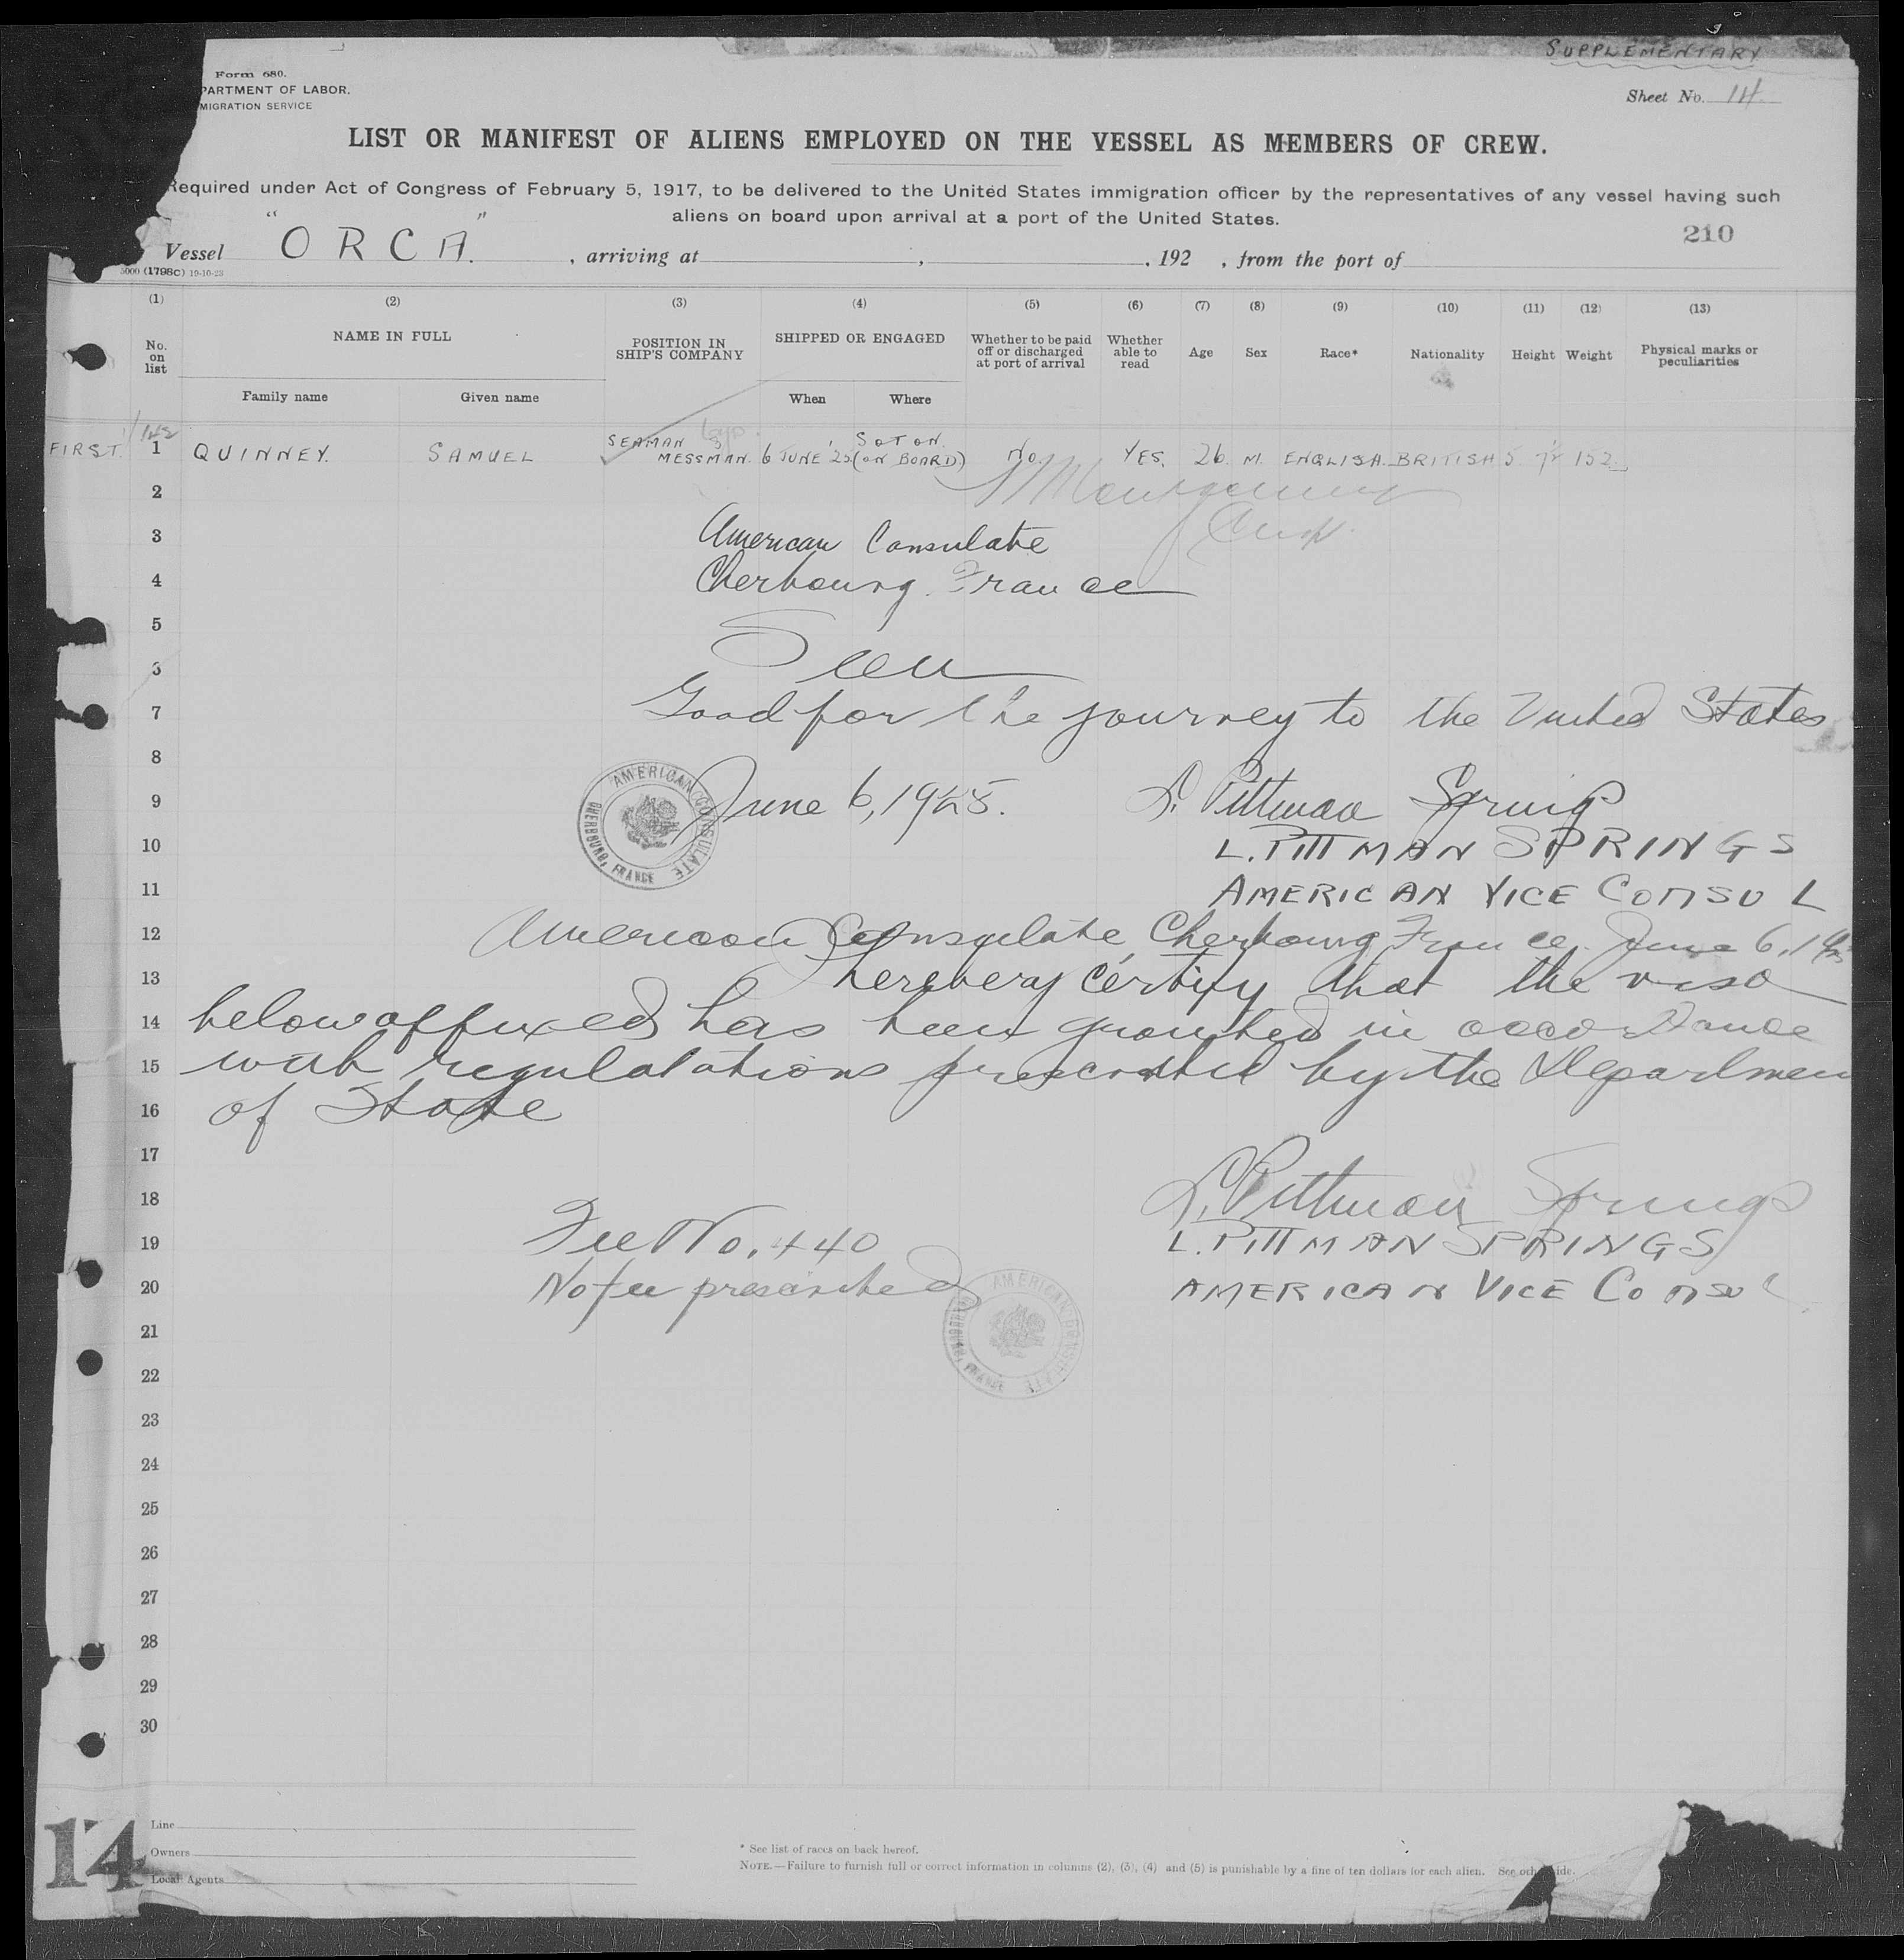 SUPPLEMENTARY
Form 680.
PARTMENT OF LABOR.
MIGRATION SERVICE
Sheet No. 14
LIST OR MANIFEST OF ALIENS EMPLOYED ON THE VESSEL AS MEMBERS OF CREW.
Required under Act of Congress of February 5, 1917, to be delivered to the United States immigration officer by the representatives of any vessel having such
aliens on board upon arrival at a port of the United States.
210
Vessel "ORCA." , arriving at , , 192 , from the port of
5000 (1798c) 19-10-23
(1) (2) (3) (4) (5) (6) (7) (8) (9) (10) (11) (12) (13)
No. on list NAME IN FULL POSITION IN SHIP'S COMPANY SHIPPED OR ENGAGED Whether to be paid off or discharged at port of arrival Whether able to read Age Sex Race* Nationality Height Weight Physical marks or peculiarities
Family name Given name When Where
FIRST. 1 QUINNEY. SAMUEL SEAMAN'S MESSMAN. 6 JUNE '25 SOTON. (ON BOARD) No. YES. 26 M. ENGLISH. BRITISH 5 7½ 152
2
3 American Consulate
4 Cherbourg. France
5
6 Seen
7 Good for the journey to the United States
8
9 June 6, 1925. L. Pittman Springs
AMERICAN CONSULATE
CHERBOURG, FRANCE
10 L. PITTMAN SPRINGS
11 AMERICAN VICE CONSUL
12 American Consulate Cherbourg France. June 6, 19
13 I herebery certify that the visa
14 below affixed has been granted in accordance
15 with regulatations prescribed by the Departmen
16 of State
17
18 L. Pittman Springs
19 Fee No. 440 L. PITTMAN SPRINGS
20 No fee prescribed AMERICAN VICE CONSUL
AMERICAN CONSULATE
CHERBOURG, FRANCE
21
22
23
24
25
26
27
28
29
30
14
Line
Owners
Local Agents
* See list of races on back hereof.
NOTE.—Failure to furnish full or correct information in columns (2), (3), (4) and (5) is punishable by a fine of ten dollars for each alien. See oth ide.